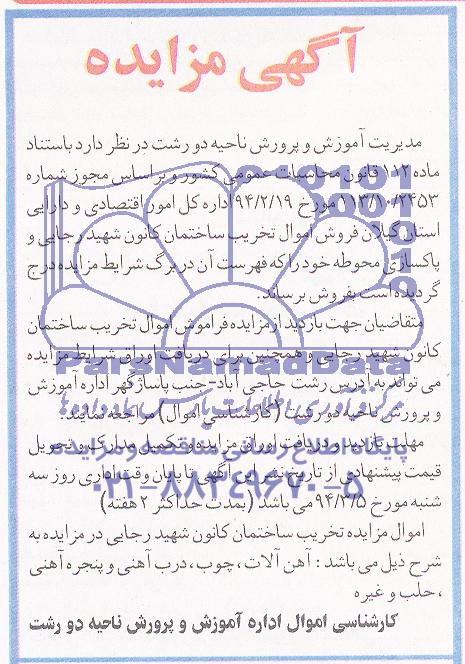 آگهی مزایده
مدیریت آموزش و پرورش ناحیه دو رشت در نظر دارد باستناد
ماده ۱۱۲ قانون محاسبات عمومی کشور و بر اساس مجوز شماره
۱۱۳/۱۰/۲۴۵۳ مورخ ۹۴/۲/۱۹ اداره کل امور اقتصادی و دارایی
استان گیلان فروش اموال تخریب ساختمان کانون شهید رجایی و
پاکسازی محوطه خود را که فهرست آن در برگ شرایط مزایده درج
گردیده است بفروش برساند.
متقاضیان جهت بازدید از مزایده فراموش اموال تخریب ساختمان
کانون شهید رجایی و همچنین برای دریافت اوراق شرایط مزایده
می تواند به آدرس رشت حاجی آباد-جنب پاساژ گهر اداره آموزش
و پرورش ناحیه دو رشت (کارشناسی اموال) مراجعه نمایند.
مهلت بازدید و دریافت اوراق مزایده و تکمیل مدارک و تحویل
قیمت پیشنهادی از تاریخ نشر این آگهی تا پایان وقت اداری روز سه
شنبه مورخ ۹۴/۳/۵ می باشد (بمدت حداکثر ۲ هفته)
اموال مزایده تخریب ساختمان کانون شهید رجایی در مزایده به
شرح ذیل می باشد : آهن آلات ، چوب، درب آهنی و پنجره آهنی
، حلب و غیره
کارشناسی اموال اداره آموزش و پرورش ناحیه دو رشت
ParsNamadData
پایگاه اطلاع رسانی مناقصه و مزایده
۰۲۱-۸۸۳۴۹۶۷۰-۵